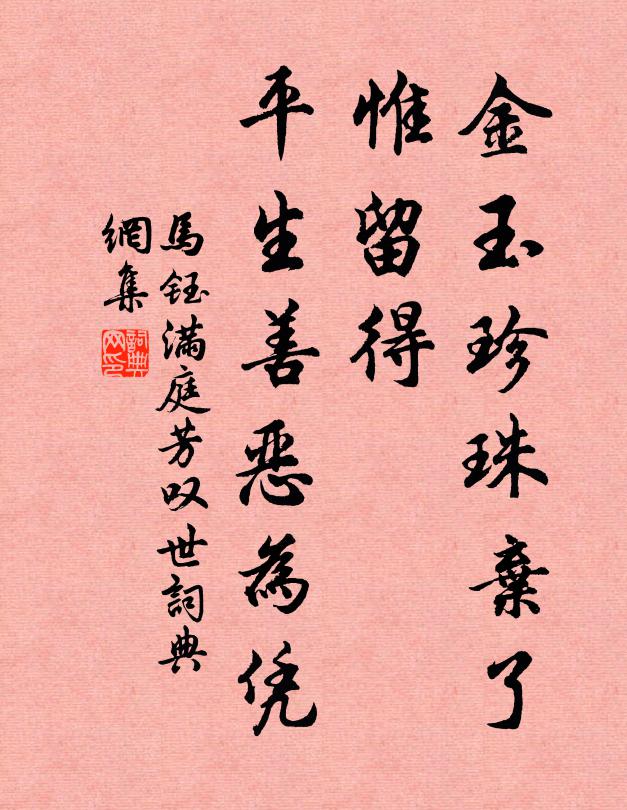 金玉珍珠棄了
惟留得
平生善惡為凭
馬鈺滿庭芳叹世詞典
網集
詞典
网印